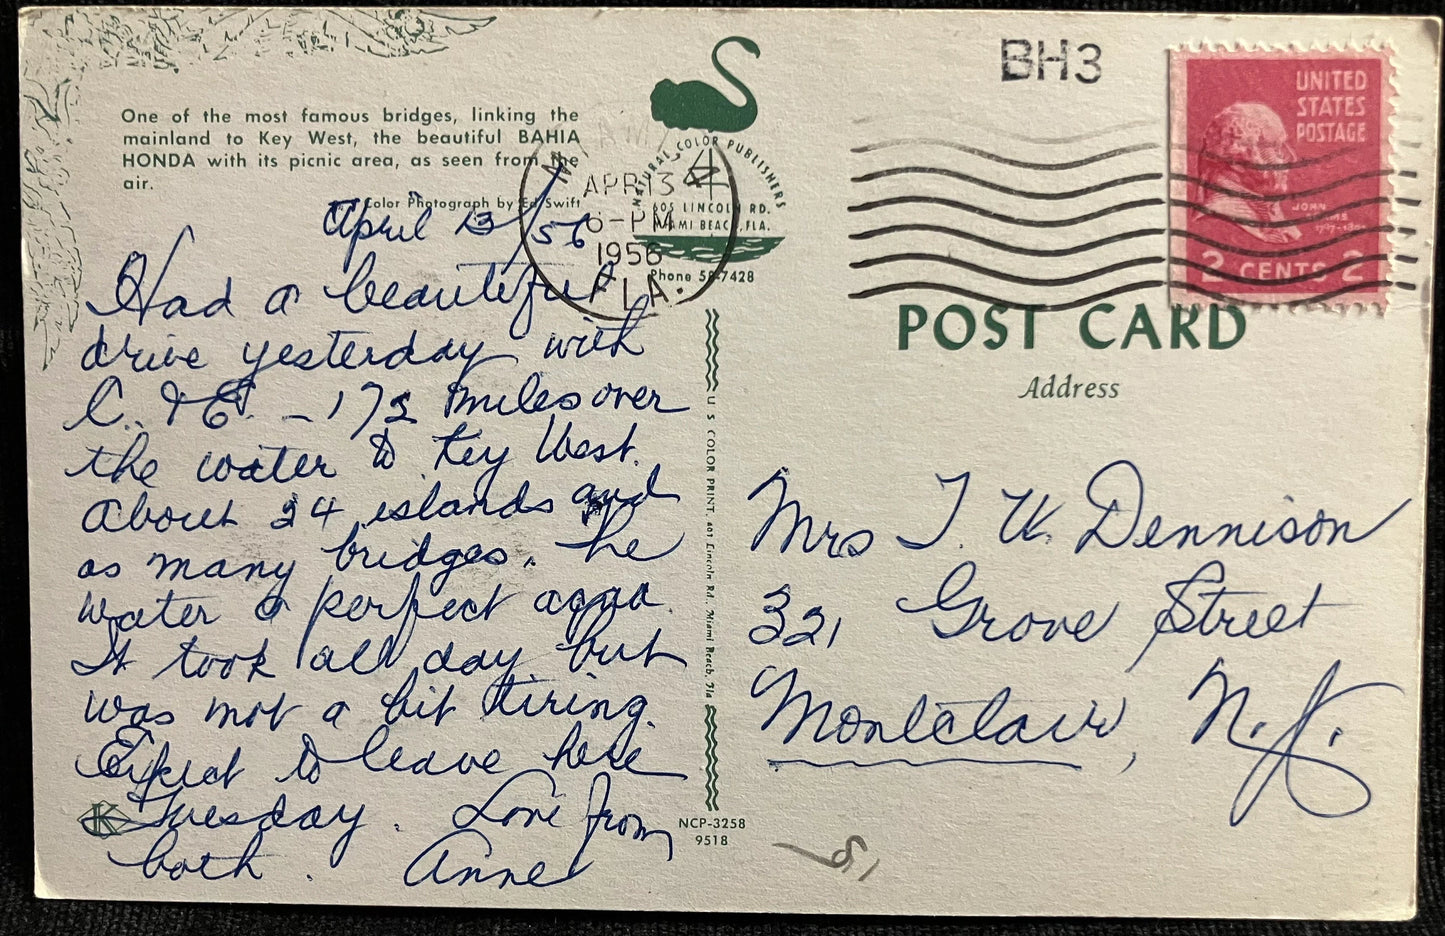 One of the most famous bridges, linking the
mainland to Key West, the beautiful BAHIA
HONDA with its picnic area, as seen from the
air.
Color Photograph by Ed Swift
April 13/56
Had a beautiful
drive yesterday with
C. & E. - 172 miles over
the water to Key West.
About 24 islands and
as many bridges. The
water a perfect aqua.
It took all day but
was not a bit tiring.
Expect to leave here
Tuesday. Love from
both. Anne
K
NATURAL COLOR PUBLISHERS
605 LINCOLN RD.
MIAMI BEACH, FLA.
Phone 58-7428
APR 13
6-PM
1956
FLA.
U S COLOR PRINT, 407 Lincoln Rd., Miami Beach, Fla
NCP-3258
9518
BH3
UNITED
STATES
POSTAGE
JOHN
ADAMS
1797-1801
2 CENTS 2
POST CARD
Address
Mrs T. W. Dennison
321 Grove Street
Montclair, N.J.